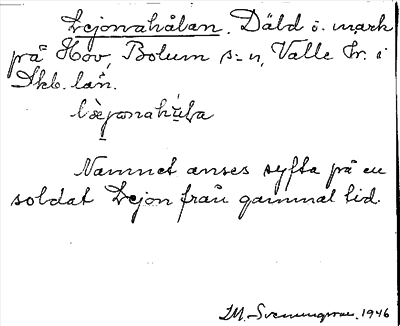 Lejonahålan. Däld i mark
på Hov, Bolum s:n, Valle hr. i
Skb. län.
Namnet anses syfta på en
soldat Lejon från gammal tid.
1946